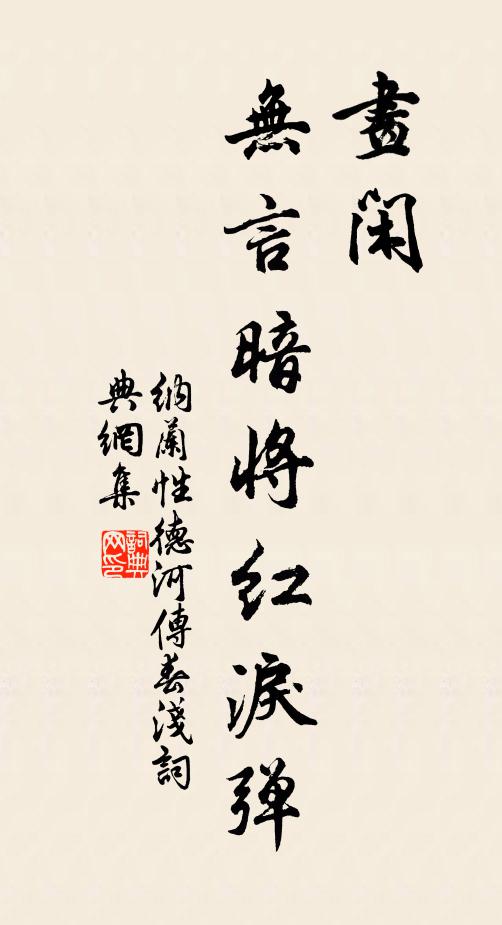 晝閑
無言暗將紅淚彈
納蘭性德河傳春淺詞
典網集
詞典
网印